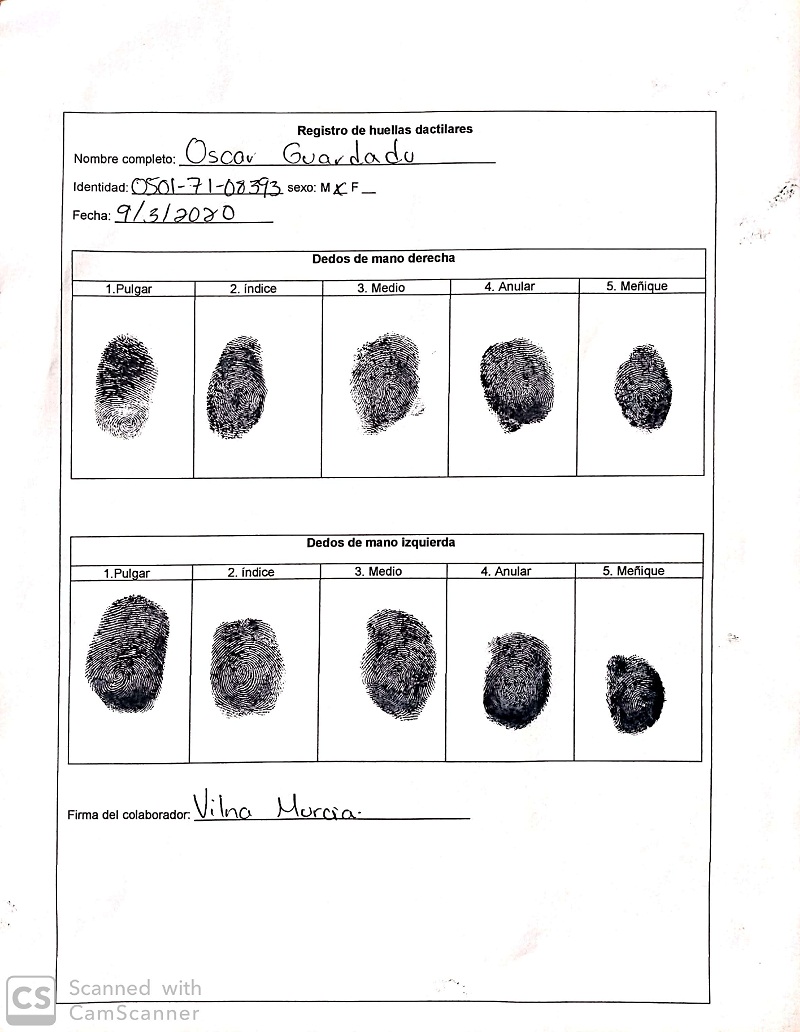 Registro de huellas dactilares
Nombre completo: Oscar Guardado
Identidad: 0501-71-08393 sexo: M X F __
Fecha: 9/3/2020
Dedos de mano derecha
1.Pulgar 2. índice 3. Medio 4. Anular 5. Meñique
Dedos de mano izquierda
1.Pulgar 2. índice 3. Medio 4. Anular 5. Meñique
Firma del colaborador: Vilna Murcia.
CS Scanned with
CamScanner